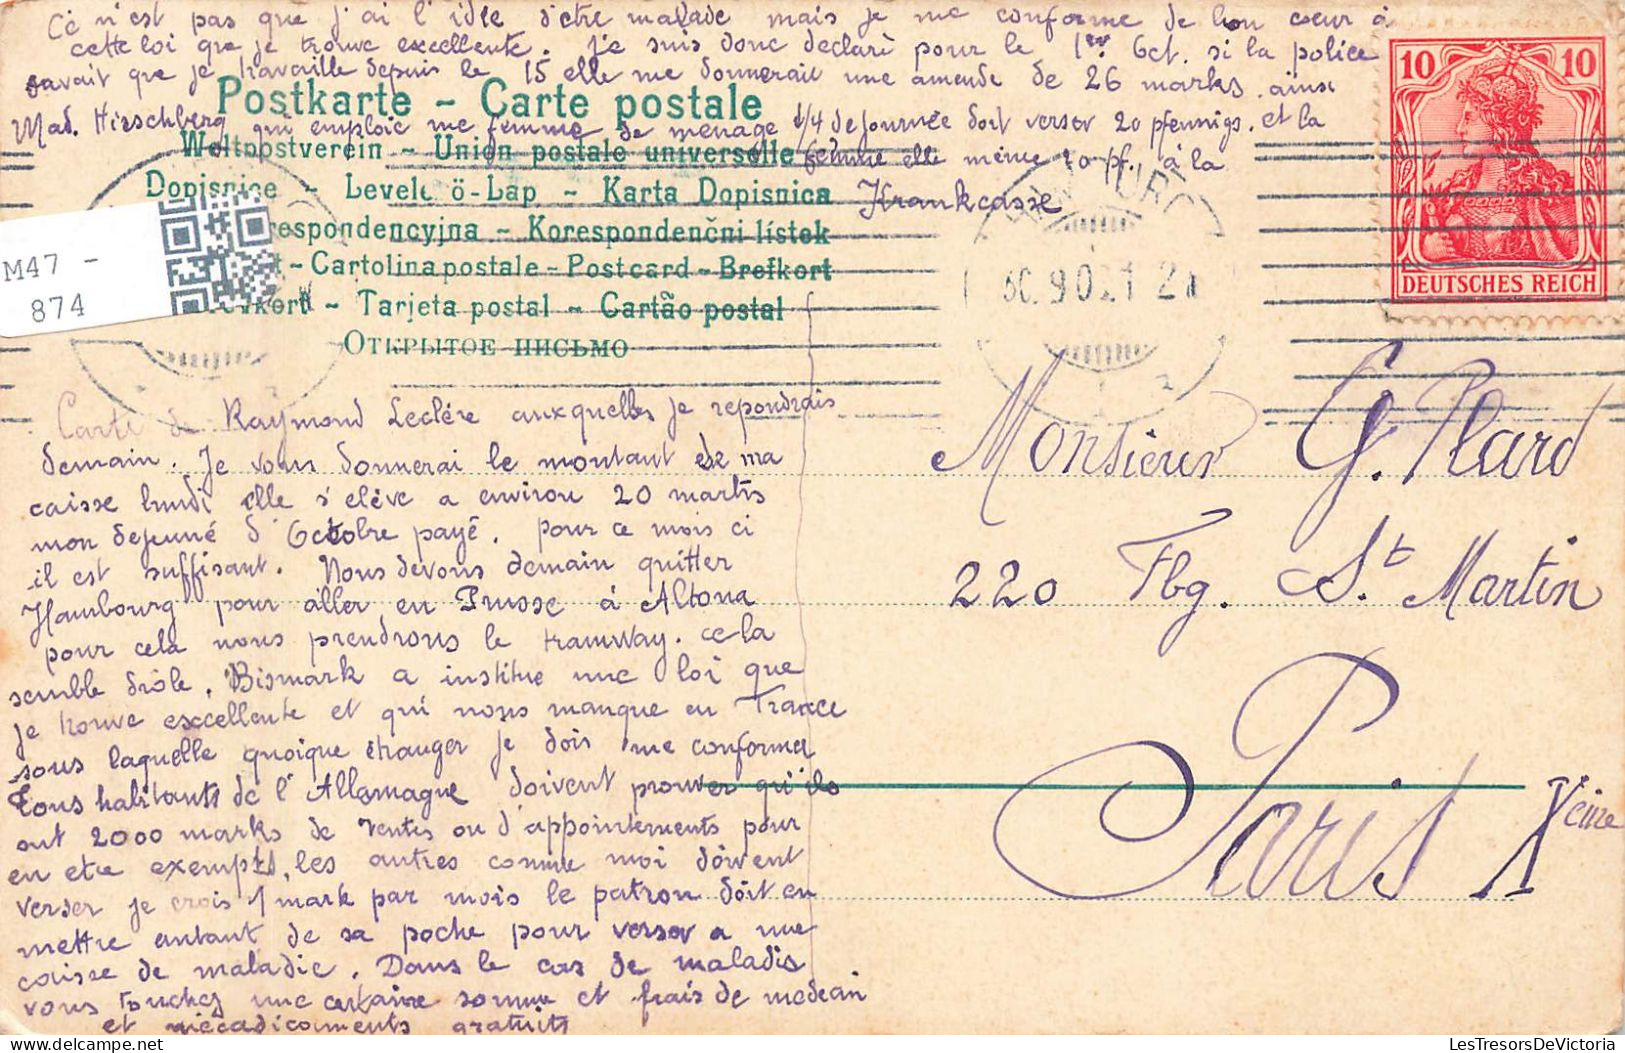 Ce n'est pas que j'ai l'idée d'etre malade mais je me conforme de bon coeur à
cette loi que je trouve excellente. Je suis donc declaré pour le 1er Oct. si la police
savait que je travaille depuis le 15 elle me donnerait une amende de 26 marks. ainsi
Mad. Hirschberg qui emploie une femme de menage 1/4 de journée doit verser 20 pfennigs. et la
femme elle même 10 pf. à la
Krankcasse
Postkarte - Carte postale
Weltpostverein - Union postale universelle
Dopisnice - Levelező-Lap - Karta Dopisnica
respondencyjna - Korespondenční lístek
- Cartolina postale - Postcard - Brefkort
vkort - Tarjeta postal - Cartão postal
Открытое письмо
M47 -
874
10 10
DEUTSCHES REICH
30.9.02.1 2
Carte de Raymond Leclére auxquelles je repondrais
demain. Je vous donnerai le montant de ma
caisse lundi elle s'elève a environ 20 marks
mon dejeuné d'Octobre payé. pour ce mois ci
il est suffisant. Nous devons demain quitter
Hambourg pour aller en Prusse à Altona
pour cela nous prendrons le tramway. cela
semble drôle. Bismark a institué une loi que
je trouve excellente et qui nous manque en France
sous laquelle quoique étranger je dois me conformer
Tous habitants de l'Allemagne doivent prouver qu'ils
ont 2000 marks de rentes ou d'appointements pour
en etre exempts, les autres comme moi doivent
verser je crois 1 mark par mois le patron doit en
mettre autant de sa poche pour verser a une
caisse de maladie. Dans le cas de maladie
vous touchez une certaine somme et frais de medecin
et médicaments gratuits
Monsieur G. Plard
220 Fbg. St. Martin
Paris Xeme
LesTresorsDeVictoria